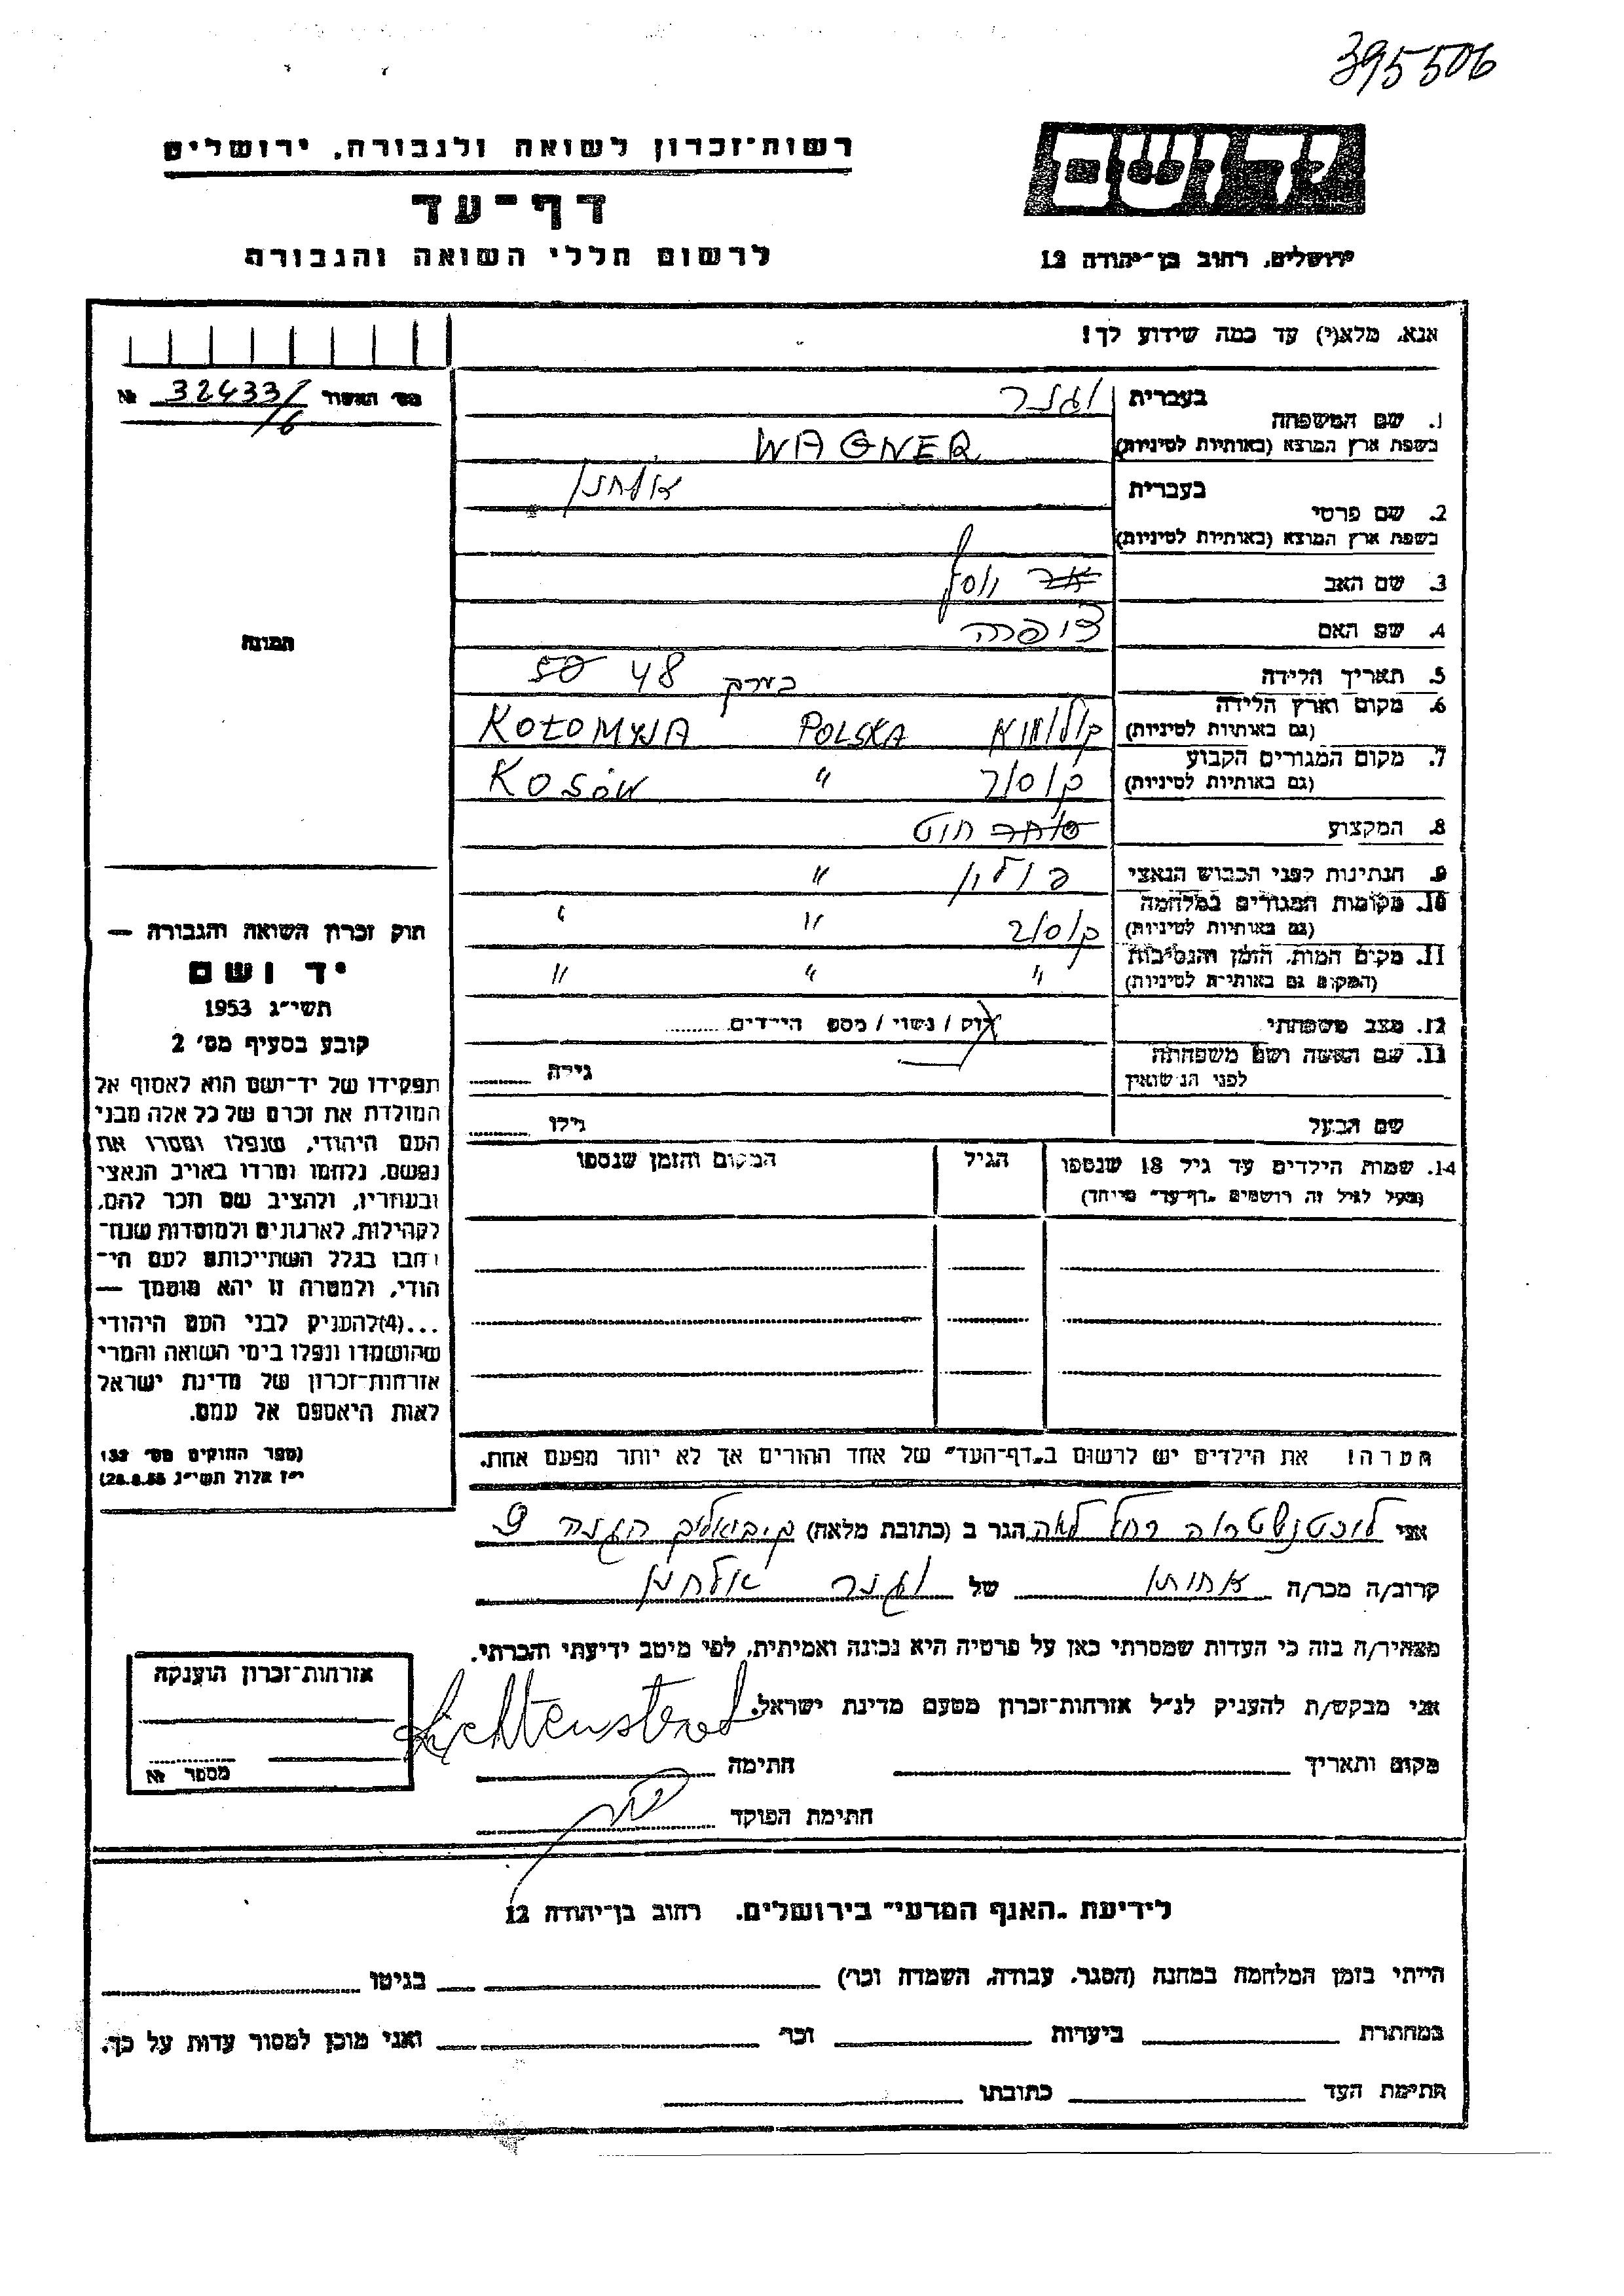 395506
רשות־זכרון לשואה ולגבורה, ירושלים
יד ושם
דף־עד
לרשום חללי השואה והגבורה
ירושלים, רחוב בן־יהודה 12
אנא, מלא(י) עד כמה שידוע לך!
מס׳ האשור 32433/ №
/6
בעברית וגנר
1. שם המשפחה
בשפת ארץ המוצא (באותיות לטיניות) WAGNER
בעברית אלחנן
2. שם פרטי
בשפת ארץ המוצא (באותיות לטיניות)
3. שם האב יוסף
4. שם האם ציפרה
5. תאריך הלידה בערך 48 50
6. מקום וארץ הלידה
(גם באותיות לטיניות) קולומיא POLSKA KOŁOMYJA
7. מקום המגורים הקבוע
(גם באותיות לטיניות) קוסוב " KOSÓW
8. המקצוע סוחר חוט
9. הנתינות לפני הכבוש הנאצי פולין "
10. מקומות המגורים במלחמה
(גם באותיות לטיניות) קוסוב " "
11. מקום המות, הזמן והנסיבות
(המקום גם באותיות לטיניות) " " "
12. מצב משפחתי רוק / נשוי / מספ הילדים
13. שם האשה ושם משפחתה
לפני הנישואין גילה
שם הבעל גילו
14. שמות הילדים עד גיל 18 שנספו הגיל המקום והזמן שנספו
(מעל לגיל זה רושמים „דף־עד״ מיוחד)
הערה! את הילדים יש לרשום ב„דף־העד״ של אחד ההורים אך לא יותר מפעם אחת.
התמונה
חוק זכרון השואה והגבורה —
יד ושם
תשי״ג 1953
קובע בסעיף מס׳ 2
תפקידו של יד־ושם הוא לאסוף אל
המולדת את זכרם של כל אלה מבני
העם היהודי, שנפלו ומסרו את
נפשם, נלחמו ומרדו באויב הנאצי
ובעוזריו, ולהציב שם וזכר להם,
לקהילות, לארגונים ולמוסדות שנח־
רבו בגלל השתייכותם לעם הי־
הודי, ולמטרה זו יהא מוסמך —
...(4)להעניק לבני העם היהודי
שהושמדו ונפלו בימי השואה והמרי
אזרחות־זכרון של מדינת ישראל
לאות היאספם אל עמם.
(ספר החוקים מס׳ 132
י״ז אלול תשי״ג 28.8.53)
אני ליכטנשטרה רחל לאה הגר ב (כתובת מלאה) ק. ביאליק הגנה 9
קרוב/ה מכר/ה אחותו של וגנר אלחנן
מצהיר/ה בזה כי העדות שמסרתי כאן על פרטיה היא נכונה ואמיתית, לפי מיטב ידיעתי והכרתי.
אני מבקש/ת להעניק לנ״ל אזרחות־זכרון מטעם מדינת ישראל.
מקום ותאריך חתימה
חתימת הפוקד
אזרחות־זכרון הוענקה
מספר №
לידיעת „האגף המדעי״ בירושלים, רחוב בן־יהודה 12
הייתי בזמן המלחמה במחנה (הסגר, עבודה, השמדה וכר׳) בגיטו
במחתרת ביערות וכר׳ ואני מוכן למסור עדות על כך.
חתימת העד כתובתו